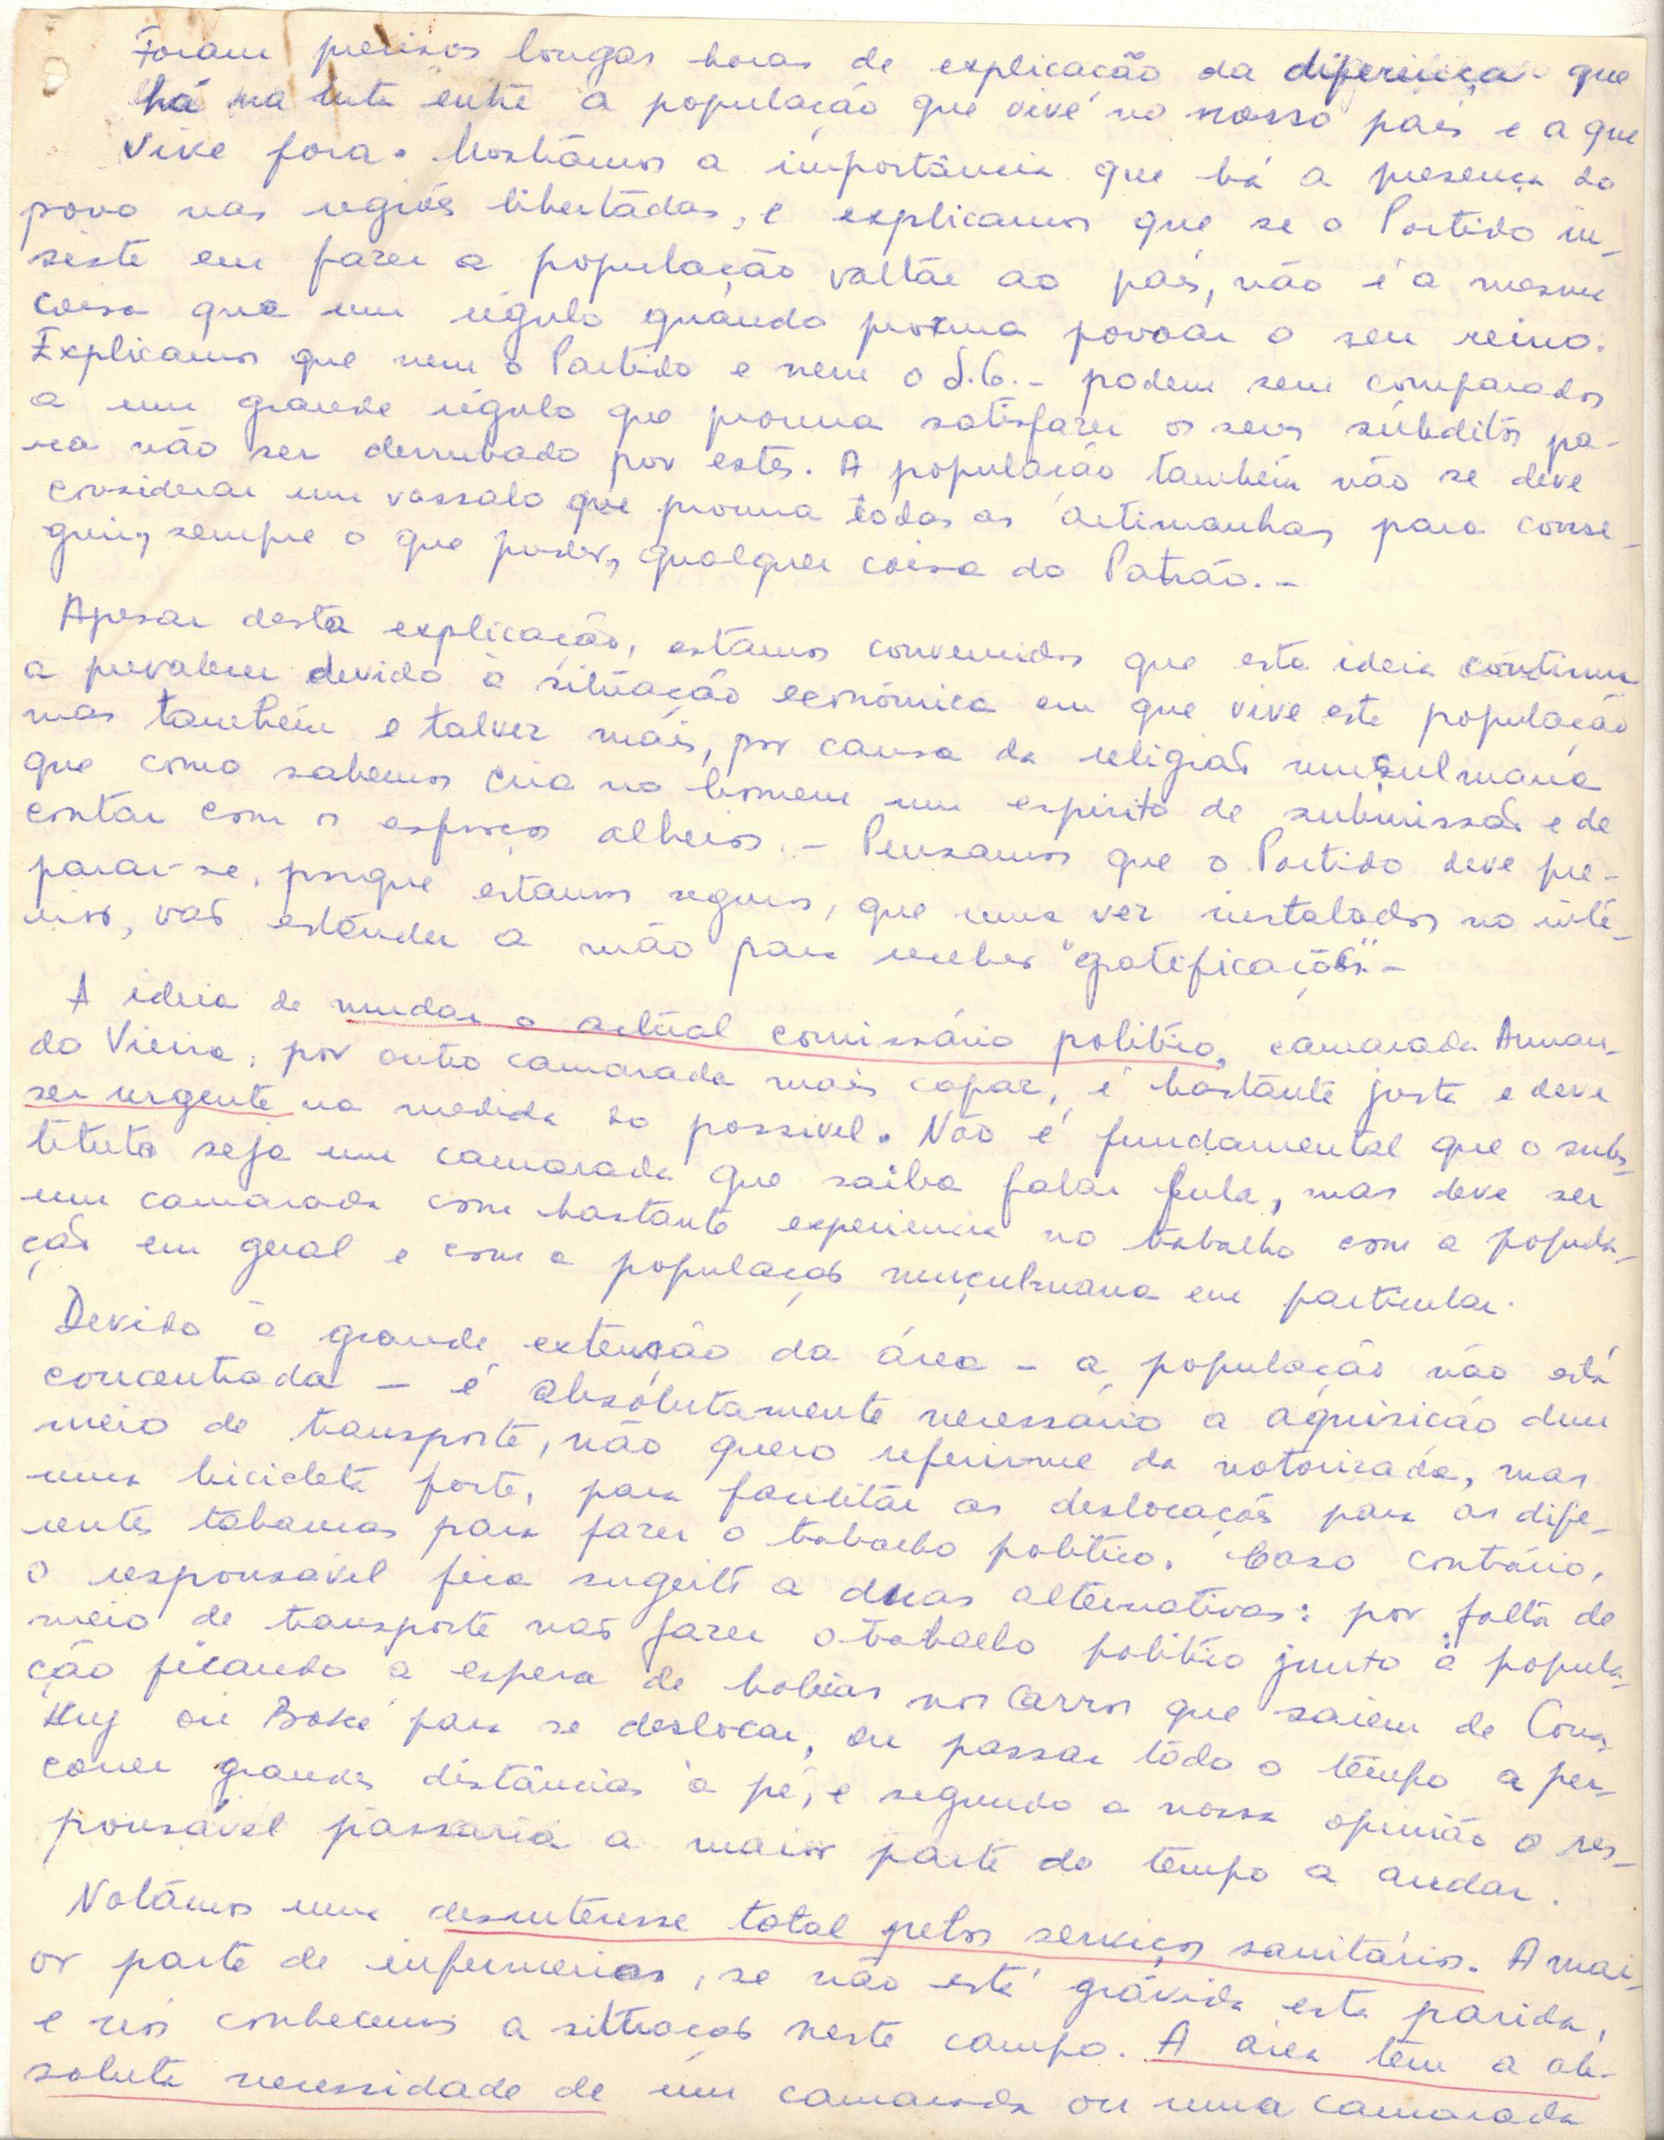 Foram precisos longas horas de explicação da diferença que
há na luta entre a população que vive no nosso país e a que
vive fora. Mostrámos a importância que há a presença do
povo nas regiões libertadas, e explicamos que se o Partido in-
siste em fazer a população voltar ao país, não é a mesma
coisa que um régulo quando procura povoar o seu reino.
Explicamos que nem o Partido e nem o S.G. - podem sem comparados
a um grande régulo que procura satisfazer os seus súbditos pa-
ra não ser derrubado por estes. A população também não se deve
considerar um vassalo que procura todas as artimanhas para conse-
guir, sempre o que puder, qualquer coisa do Patrão. -
Apesar desta explicação, estamos convencidos que esta ideia continua
a prevalecer devido à situação económica em que vive esta população
mas também e talvez mais, por causa da religião musulmana
que como sabemos cria no homem um espirito de submissão e de
contar com os esforços alheios. - Pensamos que o Partido deve pre-
parar-se, porque estamos seguros, que uma vez instalados no inte-
rior, vão estender a mão para receber "gratificações" -
A ideia de mudar o actual comissário politico, camarada Arman-
do Vieira, por outro camarada mais capaz, é bastante justa e deve
ser urgente na medida do possivel. Não é fundamental que o subs-
tituto seja um camarada que saiba falar fula, mas deve ser
um camarada com bastante experiencia no trabalho com a popula-
ção em geral e com a população muçulmana em particular.
Devido à grande extensão da área - a população não está
concentrada - é absolutamente necessário a aquisição dum
meio de transporte, não quero referir-me da motorizada, mas
uma bicicleta forte, para facilitar as deslocações para as dife-
rentes tabancas para fazer o trabalho politico. Caso contrário,
o responsável fica sugeito a duas alternativas: por falta de
meio de transporte não fazer o trabalho politico junto à popula-
ção ficando a espera de boleias nos carros que saiem de Cona-
kry ou Boké para se deslocar, ou passar todo o tempo a per-
correr grandes distâncias à pé, e segundo a nossa opinião o res-
ponsável passaria a maior parte do tempo a andar.
Notámos um desinteresse total pelos serviços sanitários. A mai-
or parte de enfermeiras, se não está grávida esta parida,
e nós conhecemos a situação neste campo. A área tem a ab-
soluta necessidade de um camarada ou uma camarada